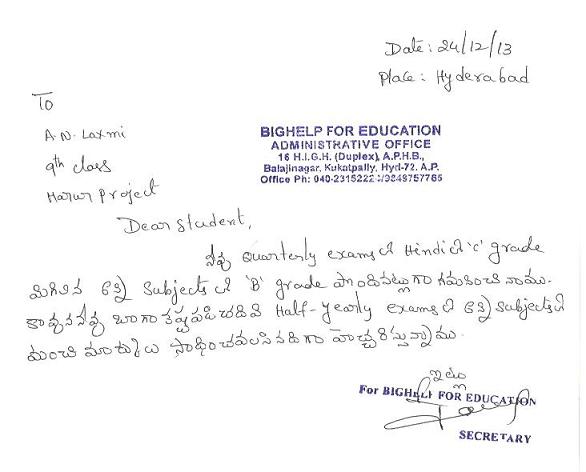 Date: 24/12/13
Place: Hyderabad
To
A.N. Laxmi
9th class
Harur Project
BIGHELP FOR EDUCATION
ADMINISTRATIVE OFFICE
16 H.I.G.H. (Duplex), A.P.H.B.,
Balajinagar, Kukatpally, Hyd-72. A.P.
Office Ph: 040-23152224/9849757765
Dear Student,
నీవు Quarterly exams లో Hindi లో 'C' grade
మిగిలిన అన్ని Subjects లో 'B' grade పొందినట్లుగా గమనించినాము.
కావున నీవు బాగా కష్టపడి చదివి Half-Yearly exams లో అన్ని Subjects లో
మంచి మార్కులు సాధించవలసినదిగా హెచ్చరిస్తున్నాము.
ఇట్లు
For BIGHELP FOR EDUCATION
SECRETARY